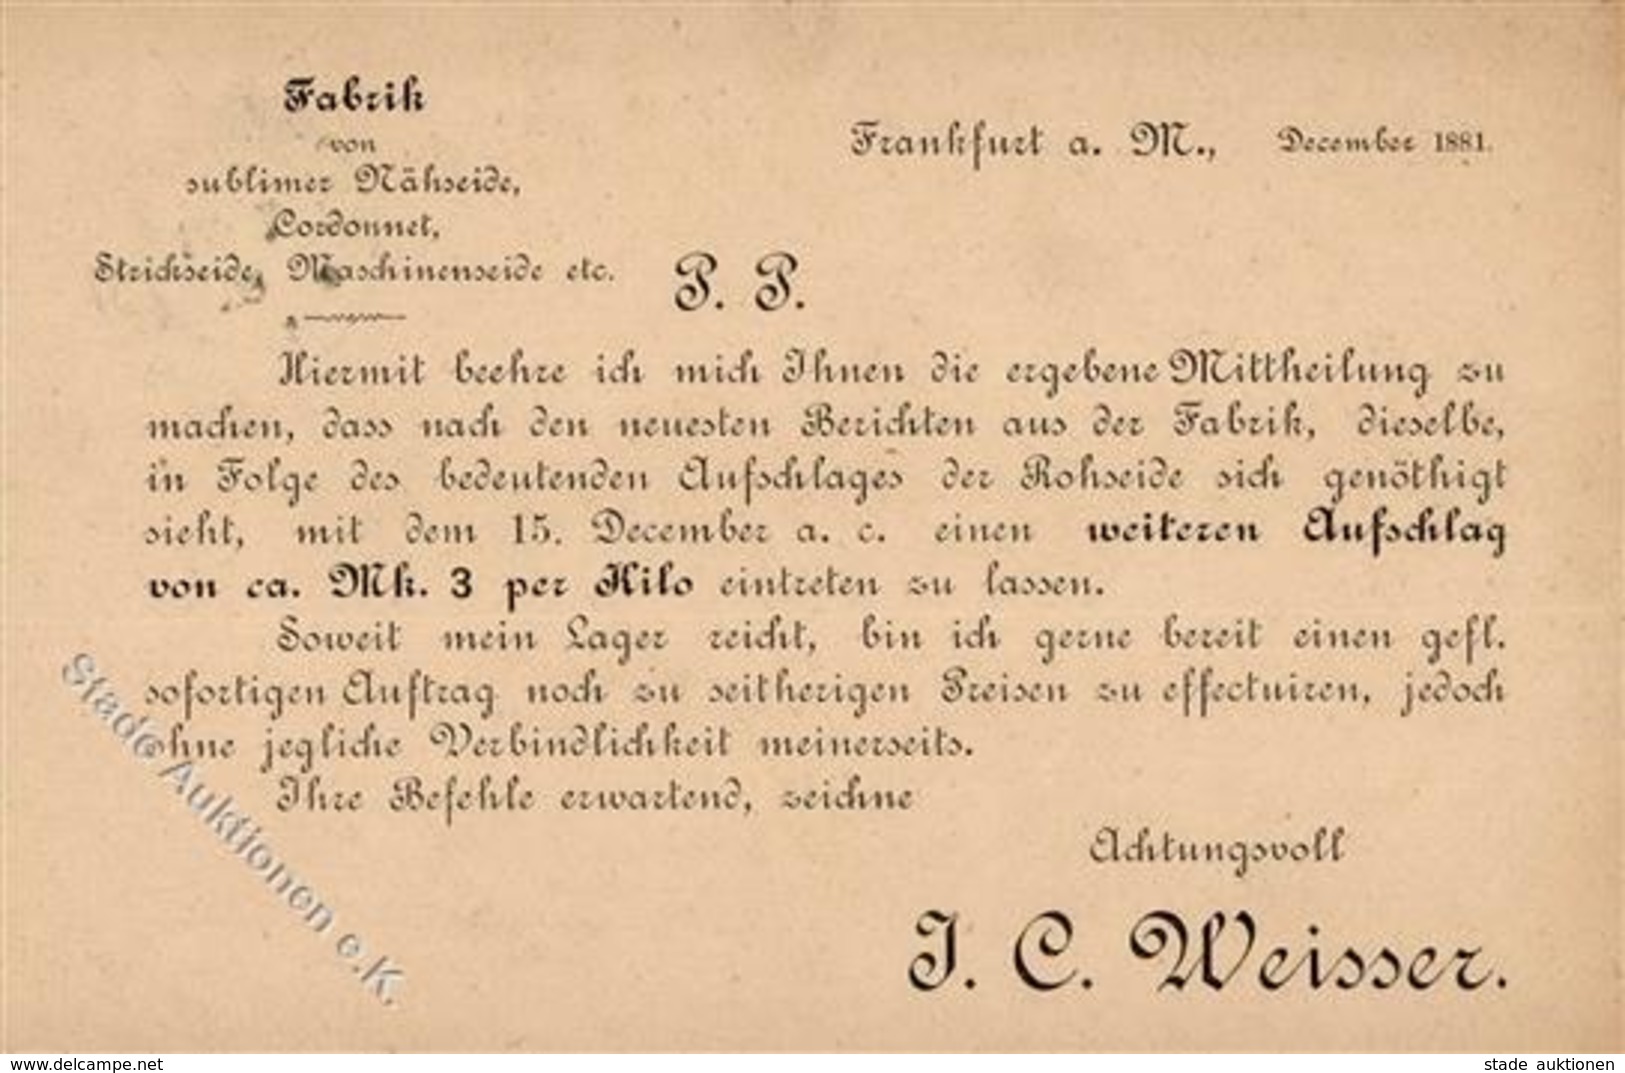 Fabrik
von
sublimer Nähseide,
Cordonnet,
Strickseide, Maschinenseide etc.
Frankfurt a. M., December 1881.
P. P.
Hiermit beehre ich mich Ihnen die ergebene Mittheilung zu
machen, dass nach den neuesten Berichten aus der Fabrik, dieselbe,
in Folge des bedeutenden Aufschlages der Rohseide sich genöthigt
sieht, mit dem 15. December a. c. einen weiteren Aufschlag
von ca. Mk. 3 per Kilo eintreten zu lassen.
Soweit mein Lager reicht, bin ich gerne bereit einen gefl.
sofortigen Auftrag noch zu seitherigen Preisen zu effectuiren, jedoch
ohne jegliche Verbindlichkeit meinerseits.
Ihre Befehle erwartend, zeichne
Achtungsvoll
J. C. Weisser.
Stade Auktionen e.K.
www.delcampe.net
stade auktionen